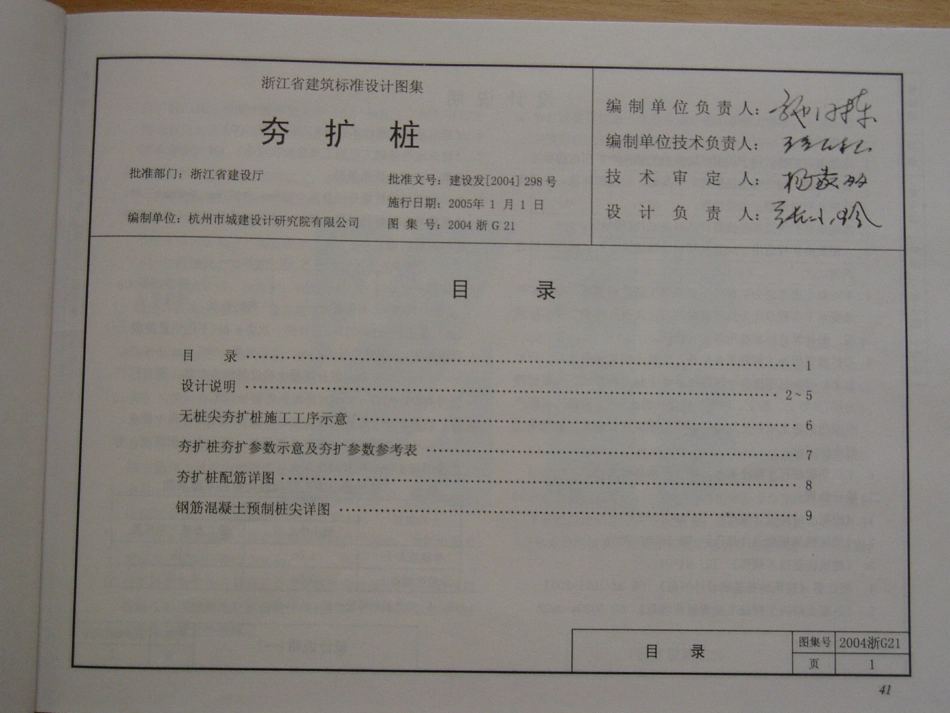 浙江省建筑标准设计图集
夯扩桩
批准部门：浙江省建设厅
批准文号：建设发[2004]298号
施行日期：2005年1月1日
编制单位：杭州市城建设计研究院有限公司
图集号：2004浙G21
编制单位负责人：
编制单位技术负责人：
技术审定人：
设计负责人：
目录
目录 1
设计说明 2~5
无桩尖夯扩桩施工工序示意 6
夯扩桩夯扩参数示意及夯扩参数参考表 7
夯扩桩配筋详图 8
钢筋混凝土预制桩尖详图 9
目录
图集号 2004浙G21
页 1
41